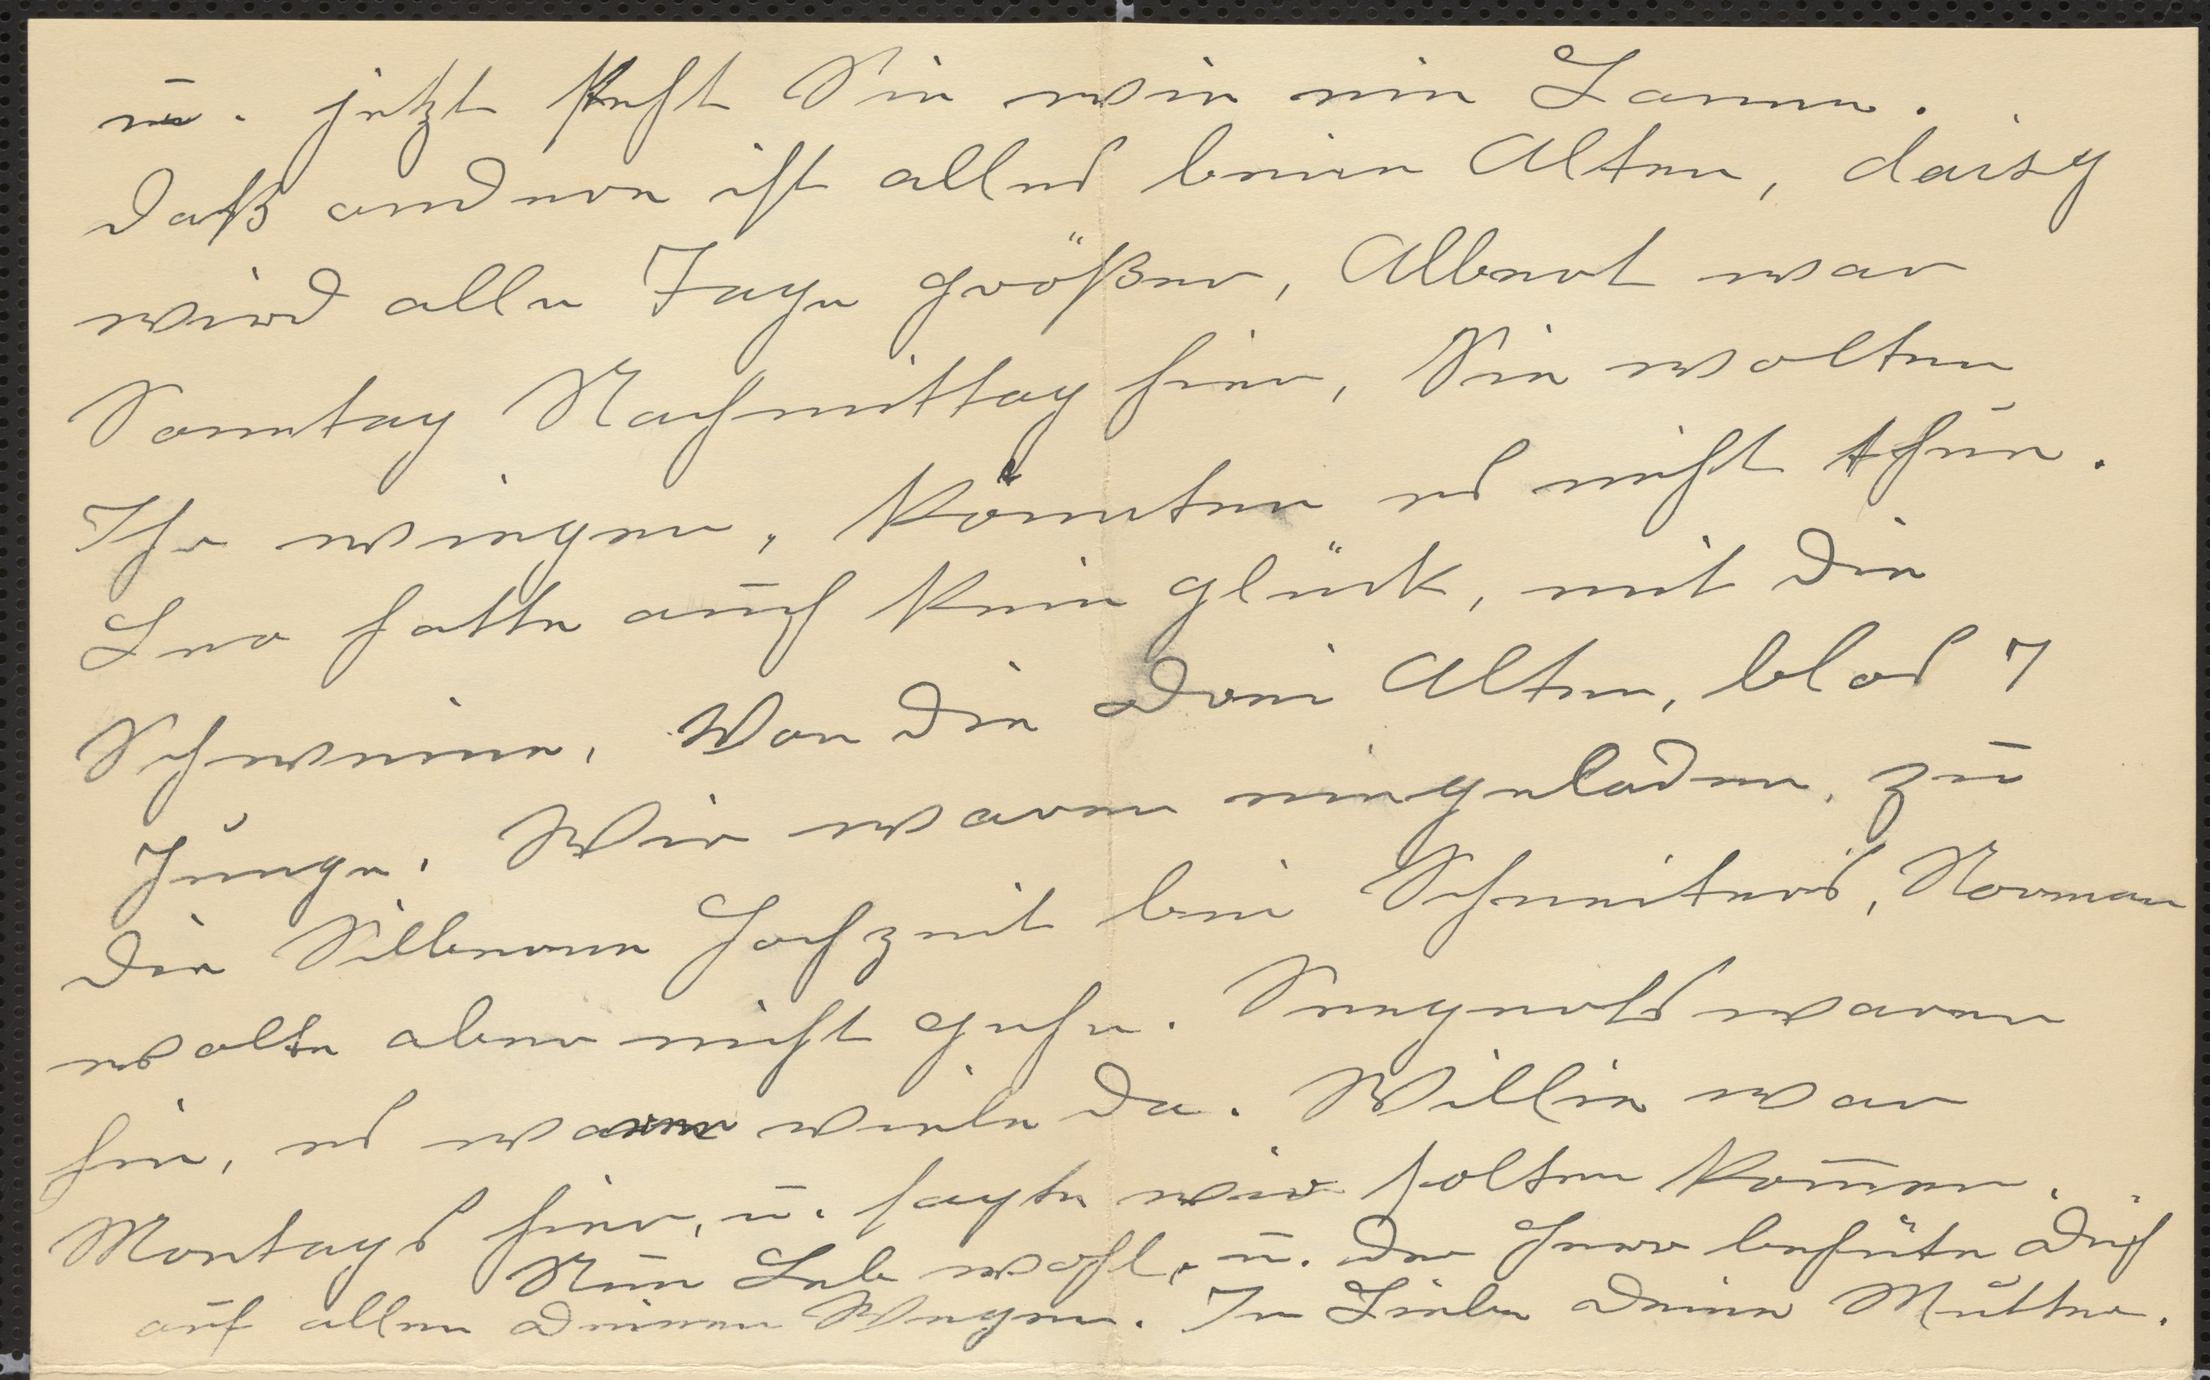 u. jetzt steht Sie wie ein Lamm.
daß andere ist alles beim Alten, daisy
wird alle Tage größer, Albert war
Sonntag Nachmittag hier, Sie wolten
Ihr wiegen, könnten es nicht thun.
Leo hatte auch kein glück, mit die
Schweine, Von die Drei Alten, blos 7
Junge. Wir waren eingeladen, zu
die Silberne Hochzeit bei Schneiters, Norman
wolte aber nicht gehe. waren
hin, es waren viele da. Willie war
Montags hier, u. sagte wir solten kommen.
Nun Leb wohl, u. der Herr behüte Dich
auf allen Deinen Wegen. In Liebe Deine Mutter.